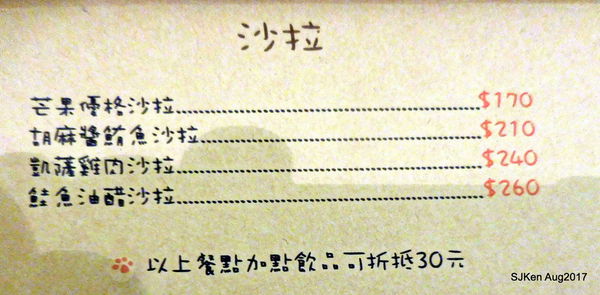 沙拉
芒果優格沙拉..............................$170
胡麻醬鮪魚沙拉..............................$210
凱薩雞肉沙拉..............................$240
鮭魚油醋沙拉..............................$260
以上餐點加點飲品可折抵30元
SJKen Aug2017